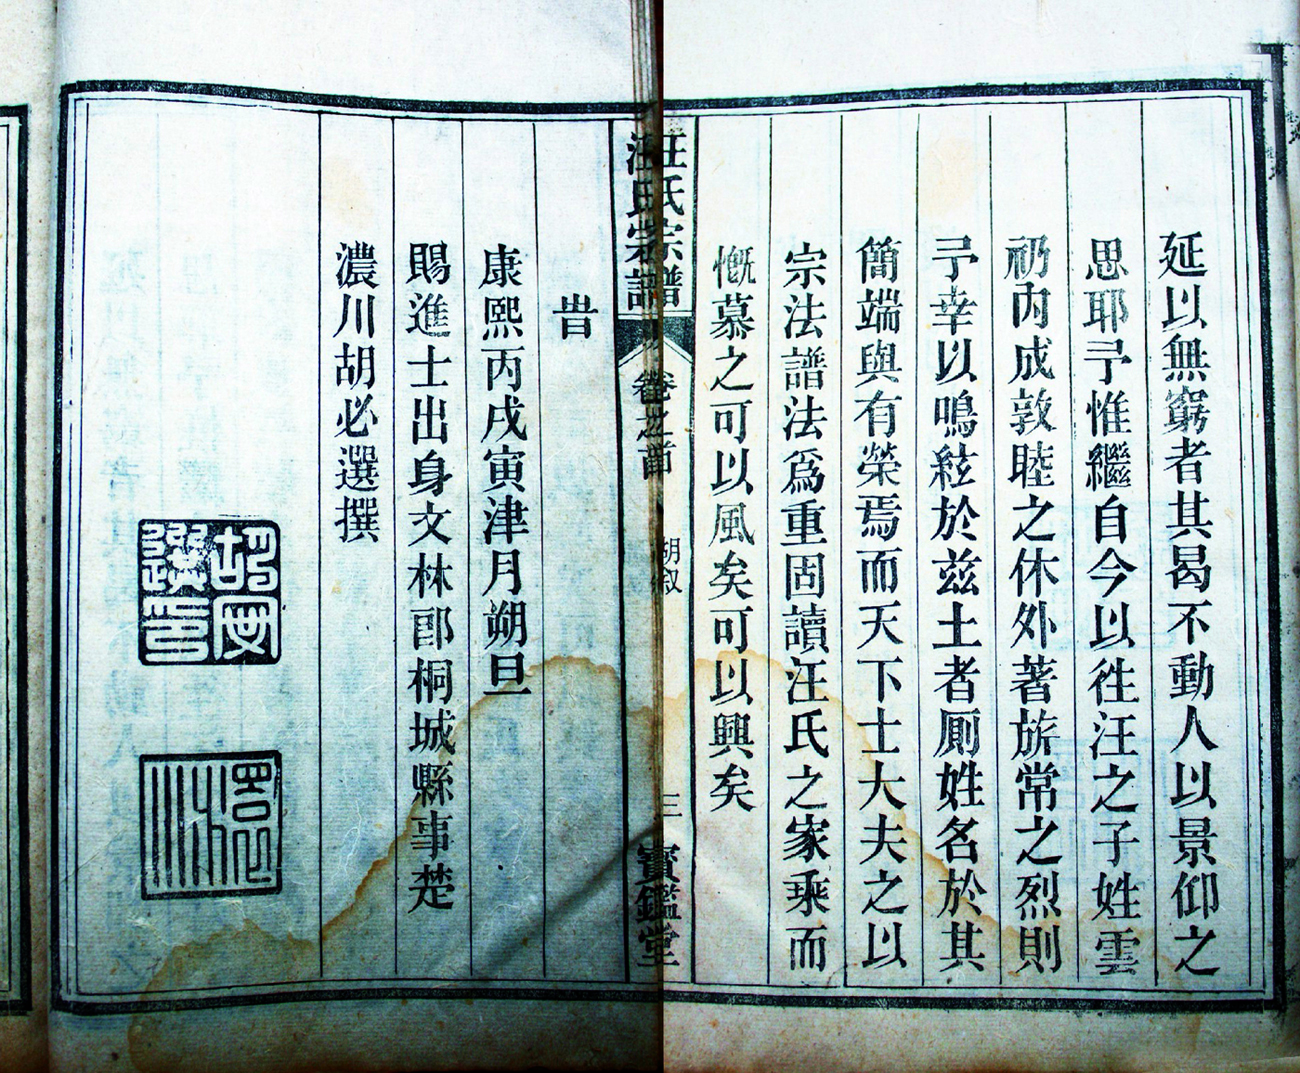 延以無窮者其曷不動人以景仰之
思耶予惟繼自今以徃汪之子姓雲
礽內成敦睦之休外著旂常之烈則
予幸以鳴絃於茲土者厠姓名於其
簡端與有榮焉而天下士大夫之以
宗法譜法爲重固讀汪氏之家乘而
慨慕之可以風矣可以興矣
汪氏宗譜
卷之首
胡叙
三
寶鑑堂
旹
康熙丙戌寅津月朔旦
賜進士出身文林郎桐城縣事楚
濃川胡必選撰
胡必選印